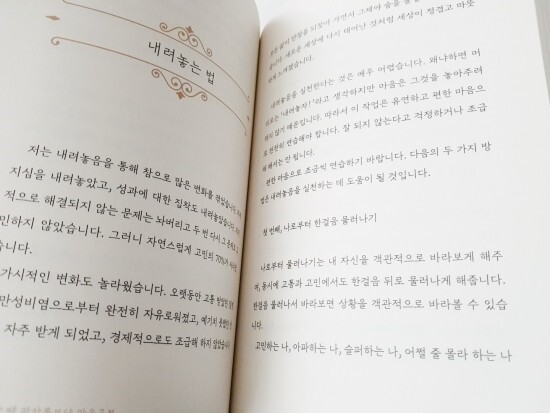 내려놓는 법
저는 내려놓음을 통해 참으로 많은 변화를 겪었습니다.
지심을 내려놓았고, 성과에 대한 집착도 내려놓았습니다.
적으로 해결되지 않는 문제는 놔버리고 두 번 다시 그 문제로 고
민하지 않았습니다. 그러니 자연스럽게 고민의 70%가
습니다.
가시적인 변화도 놀라웠습니다. 오랫동안 고통 받았던
만성비염으로부터 완전히 자유로워졌고, 예기치 못했던
자주 받게 되었고, 경제적으로도 조급해 하지 않았습니다.
되찾아 가면서 그제야 숨을
습니다. 새로운 세상에 다시 태어난 것처럼 세상이 정겹고 따뜻
하게 느껴졌습니다.
내려놓음을 실천한다는 것은 매우 어렵습니다. 왜냐하면 머
리로는 '내려놓자!'라고 생각하지만 마음은 그것을 놓아주려
하지 않기 때문입니다. 따라서 이 작업은 유연하고 편한 마음으
로 천천히 연습해야 합니다. 잘 되지 않는다고 걱정하거나 조급
해 해서는 안 됩니다.
편한 마음으로 조금씩 연습하기 바랍니다. 다음의 두 가지 방
법은 내려놓음을 실천하는 데 도움이 될 것입니다.
첫 번째, 나로부터 한걸음 물러나기
나로부터 물러나기는 내 자신을 객관적으로 바라보게 해주
며, 동시에 고통과 고민에서도 한걸음 뒤로 물러나게 해줍니다.
한걸음 물러나서 바라보면 상황을 객관적으로 바라볼 수 있습
니다.
고민하는 나, 아파하는 나, 슬퍼하는 나, 어쩔 줄 몰라 하는 나